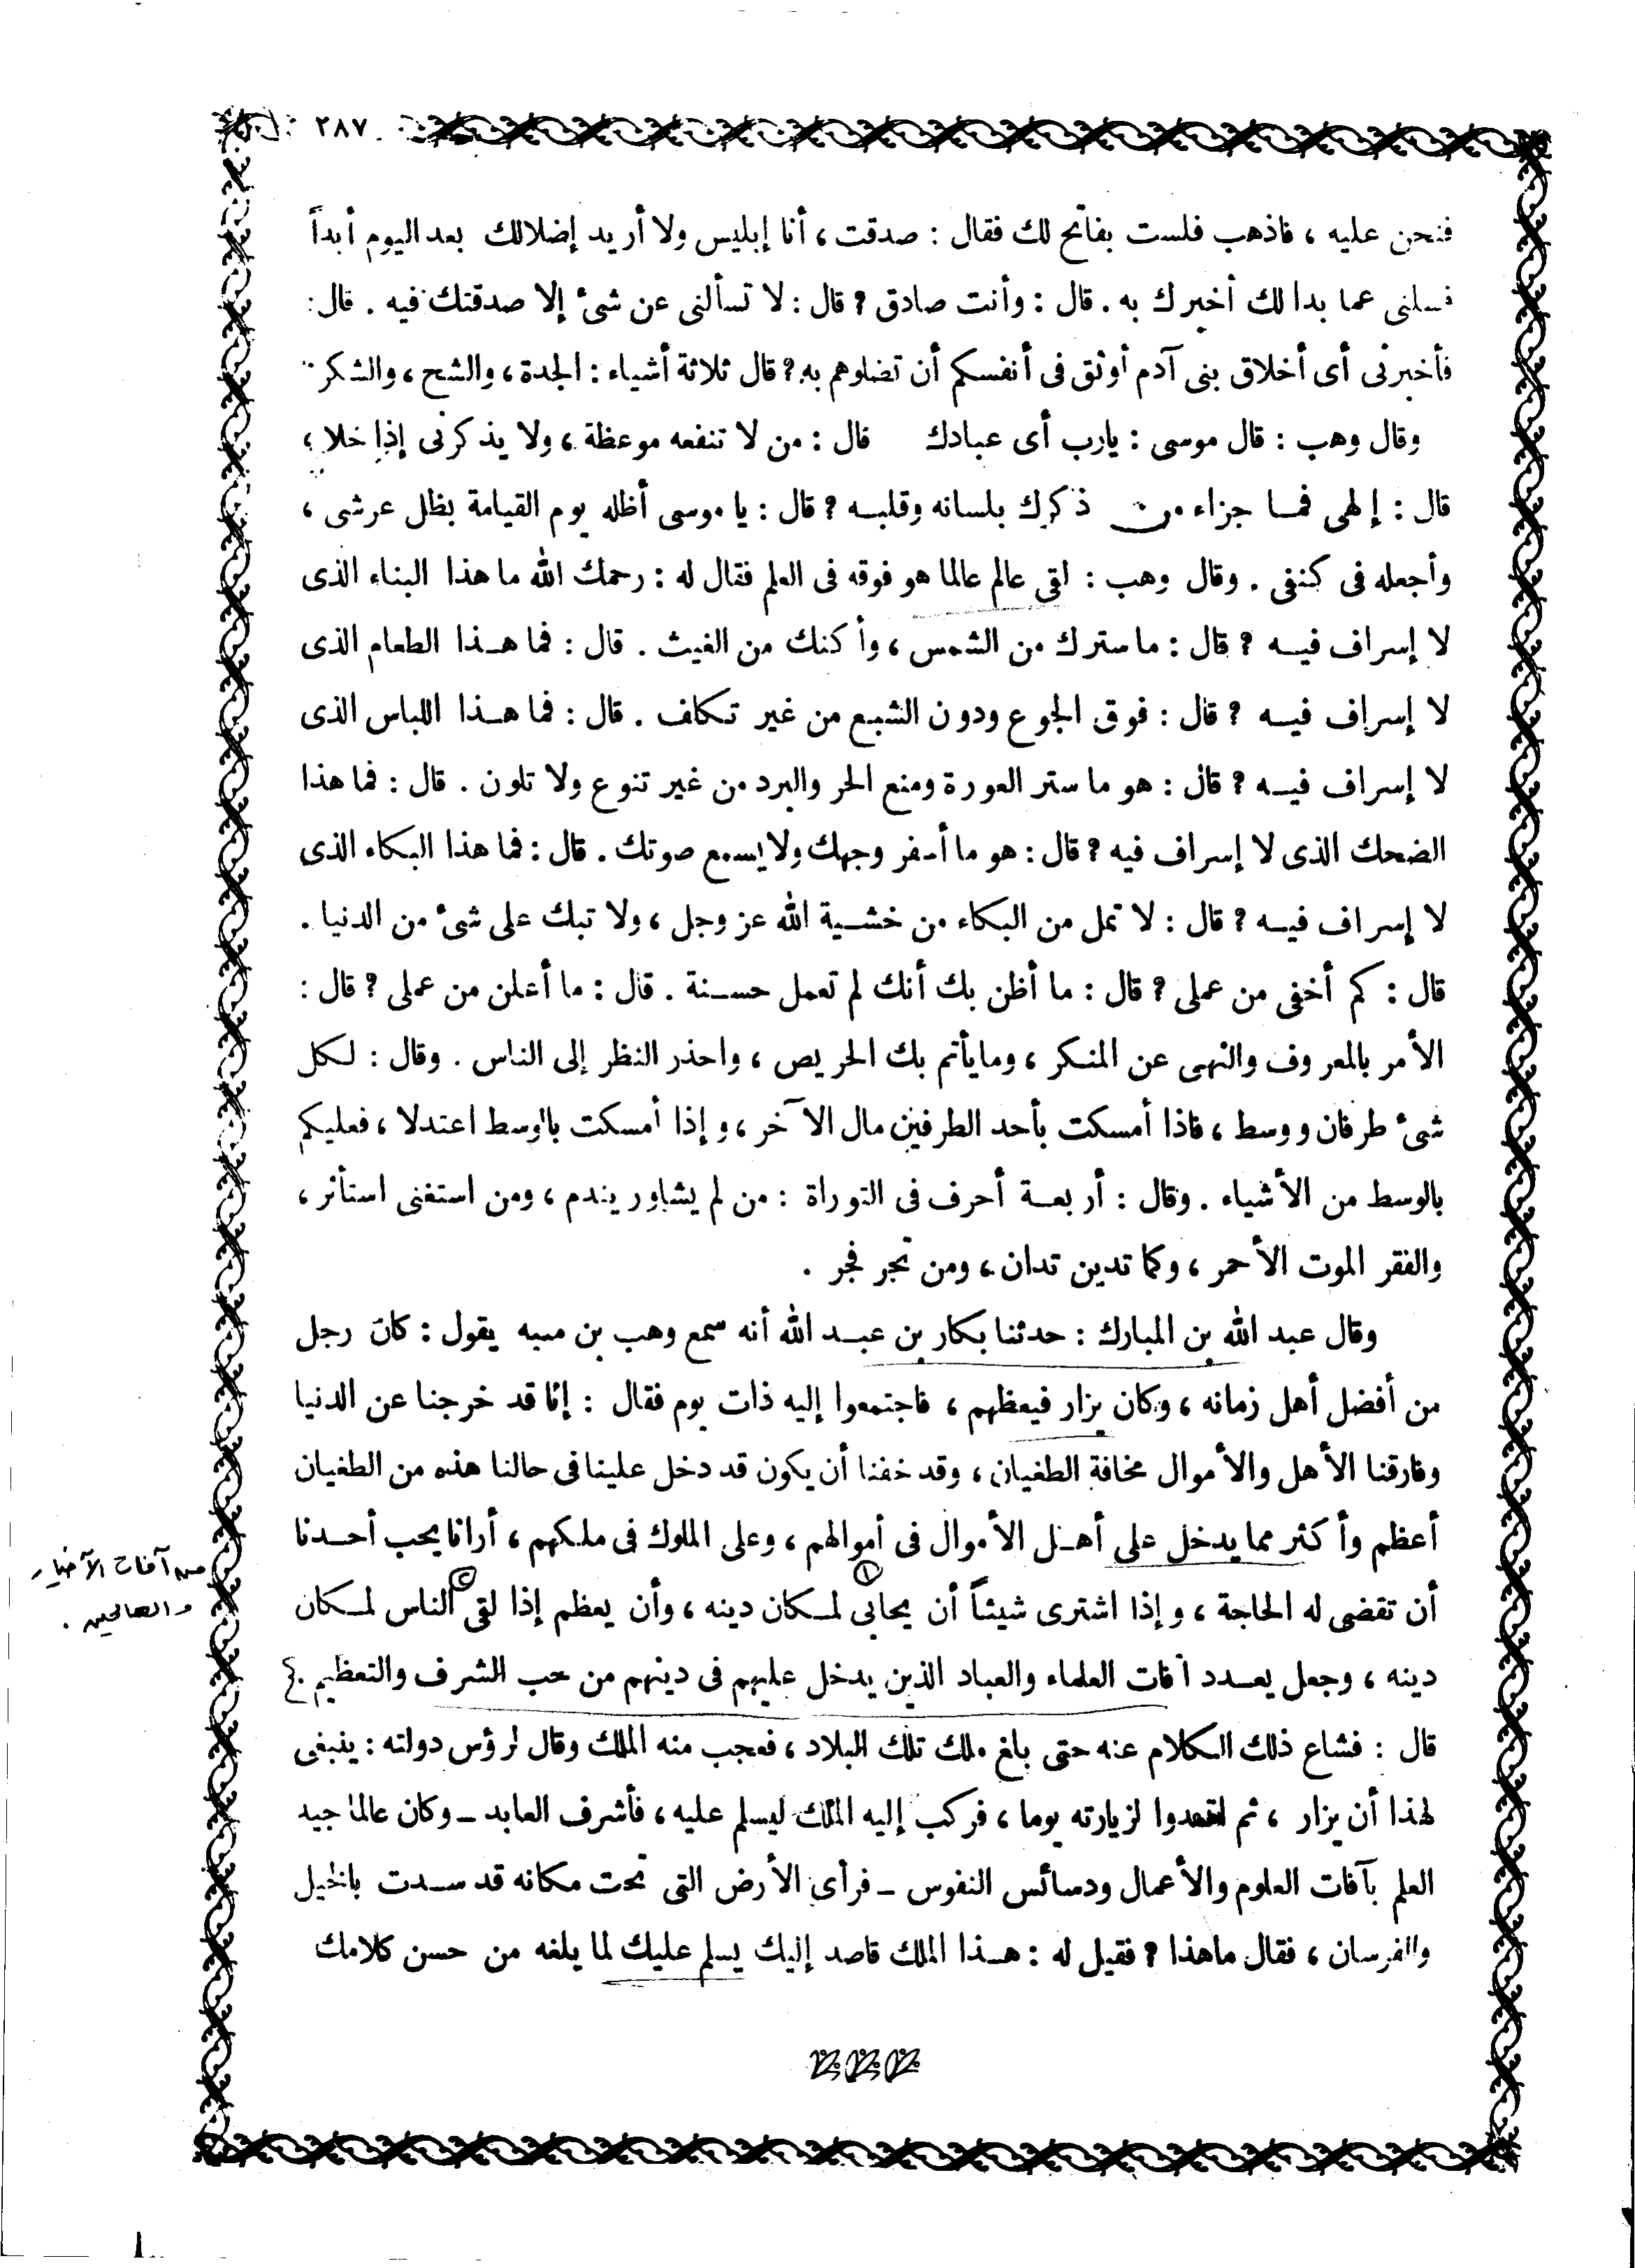 ٢٨٧
فنحن عليه ، فاذهب فلست بفاتح لك فقال : صدقت ، أنا إبليس ولا أريد إضلالك بعد اليوم أبداً
فسلنى عما بدا لك أخبرك به . قال : وأنت صادق ؟ قال : لا تسألنى عن شىء إلا صدقتك فيه . قال :
فأخبرنى أى أخلاق بنى آدم أوثق فى أنفسكم أن تضلوهم به ؟ قال ثلاثة أشياء : الجدة ، والشح ، والشكر
وقال وهب : قال موسى : يارب أى عبادك قال : من لا تنفعه موعظة ، ولا يذكرنى إذا خلا ،
قال : إلهى فما جزاء من ذكرك بلسانه وقلبه ؟ قال : يا موسى أظله يوم القيامة بظل عرشى ،
وأجعله فى كنفى . وقال وهب : لقى عالم عالما هو فوقه فى العلم فقال له : رحمك الله ما هذا البناء الذى
لا إسراف فيه ؟ قال : ما سترك من الشمس ، وأكنك من الغيث . قال : فما هذا الطعام الذى
لا إسراف فيه ؟ قال : فوق الجوع ودون الشبع من غير تكلف . قال : فما هذا اللباس الذى
لا إسراف فيه ؟ قال : هو ما ستر العورة ومنع الحر والبرد من غير تنوع ولا تلون . قال : فما هذا
الضحك الذى لا إسراف فيه ؟ قال : هو ما أسفر وجهك ولا يسمع صوتك . قال : فما هذا البكاء الذى
لا إسراف فيه ؟ قال : لا تمل من البكاء من خشية الله عز وجل ، ولا تبك على شىء من الدنيا .
قال : كم أخفى من عملى ؟ قال : ما أظن بك أنك لم تعمل حسنة . قال : ما أعلن من عملى ؟ قال :
الأمر بالمعروف والنهى عن المنكر ، وما يأتم بك الحريص ، واحذر النظر إلى الناس . وقال : لكل
شىء طرفان ووسط ، فاذا أمسكت بأحد الطرفين مال الآخر ، وإذا أمسكت بالوسط اعتدلا ، فعليكم
بالوسط من الأشياء . وقال : أربعة أحرف فى التوراة : من لم يشاور يندم ، ومن استغنى استأثر ،
والفقر الموت الأحمر ، وكما تدين تدان ، ومن تجر فجر .
وقال عبد الله بن المبارك : حدثنا بكار بن عبد الله أنه سمع وهب بن منبه يقول : كان رجل
من أفضل أهل زمانه ، وكان يزار فيعظهم ، فاجتمعوا إليه ذات يوم فقال : إنا قد خرجنا عن الدنيا
وفارقنا الأهل والأموال مخافة الطغيان ، وقد خفنا أن يكون قد دخل علينا فى حالنا هذه من الطغيان
أعظم وأكثر مما يدخل على أهل الأموال فى أموالهم ، وعلى الملوك فى ملكهم ، أرانا يحب أحدنا
أن تقضى له الحاجة ، وإذا اشترى شيئاً أن يحابى لمكان دينه ، وأن يعظم إذا لقى الناس لمكان
دينه ، وجعل يعدد آفات العلماء والعباد الذين يدخل عليهم فى دينهم من حب الشرف والتعظيم .
قال : فشاع ذلك الكلام عنه حتى بلغ ملك تلك البلاد ، فعجب منه الملك وقال لرؤس دولته : ينبغى
لهذا أن يزار ، ثم اتعدوا لزيارته يوما ، فركب إليه الملك ليسلم عليه ، فأشرف العابد ــ وكان عالما جيد
العلم بآفات العلوم والأعمال ودسائس النفوس ــ فرأى الأرض التى تحت مكانه قد سدت بالخيل
والفرسان ، فقال ماهذا ؟ فقيل له : هذا الملك قاصد إليك يسلم عليك لما بلغه من حسن كلامك
من آفات الأخيار
والصالحين .